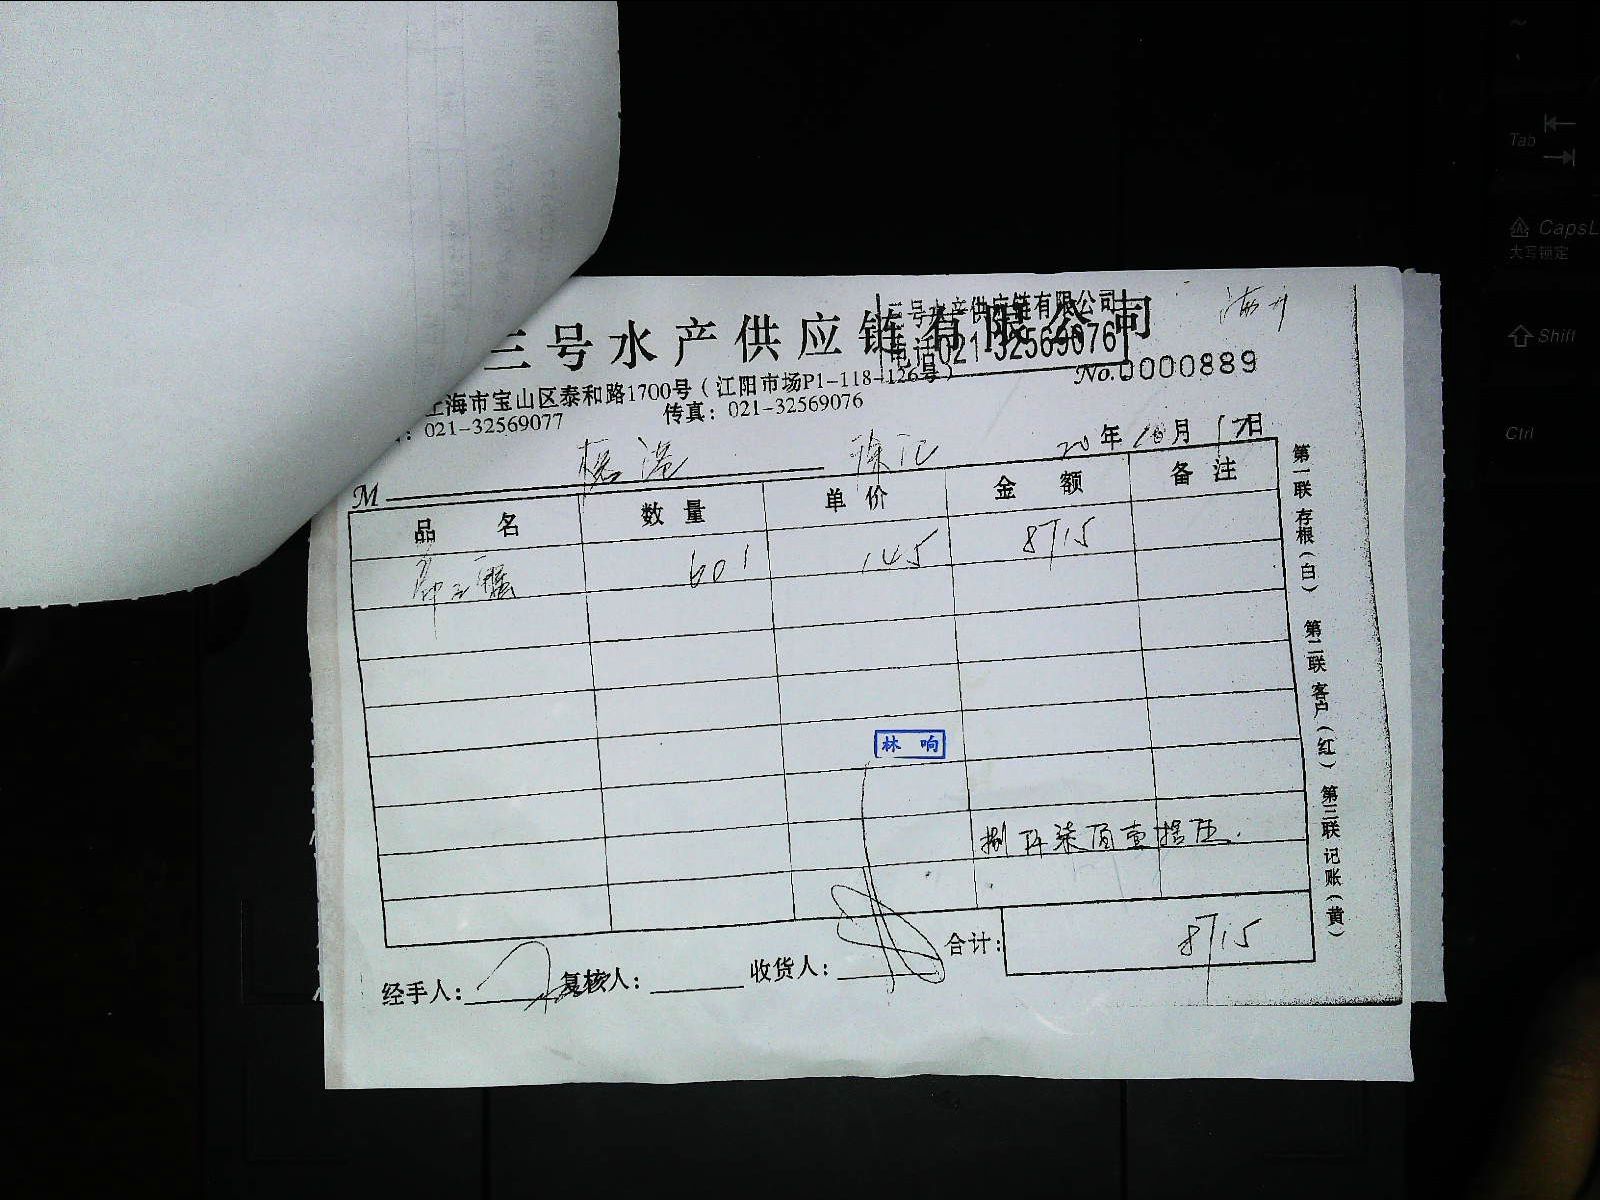 三号水产供应链有限公司
三号水产供应链有限公司
电话021-32569076
No.0000889
上海市宝山区泰和路1700号（江阳市场P1-118-126号）
：021-32569077 传真：021-32569076
20年10月17日
M
品名 数量 单价 金额 备注
601 145 8715
林响
捌仟柒佰壹拾伍
合计： 8715
经手人： 复核人： 收货人：
第一联存根（白） 第二联客户（红） 第三联记账（黄）
Tab
CapsL
大写锁定
Shift
Ctrl